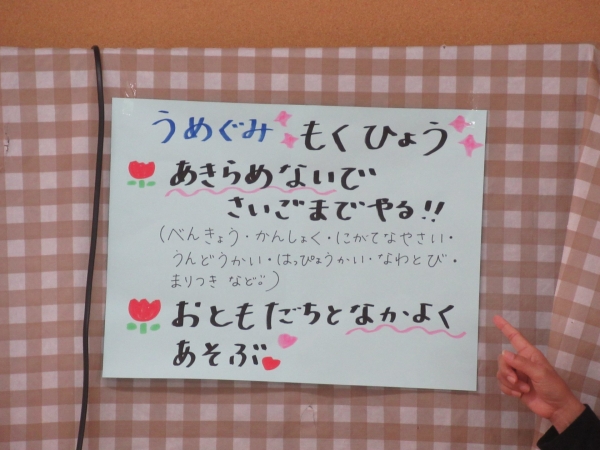 うめぐみ もくひょう
あきらめないで
さいごまでやる!!
(べんきょう・かんしょく・にがてなやさい・
うんどうかい・はっぴょうかい・なわとび・
まりつき など。)
おともだちとなかよく
あそぶ